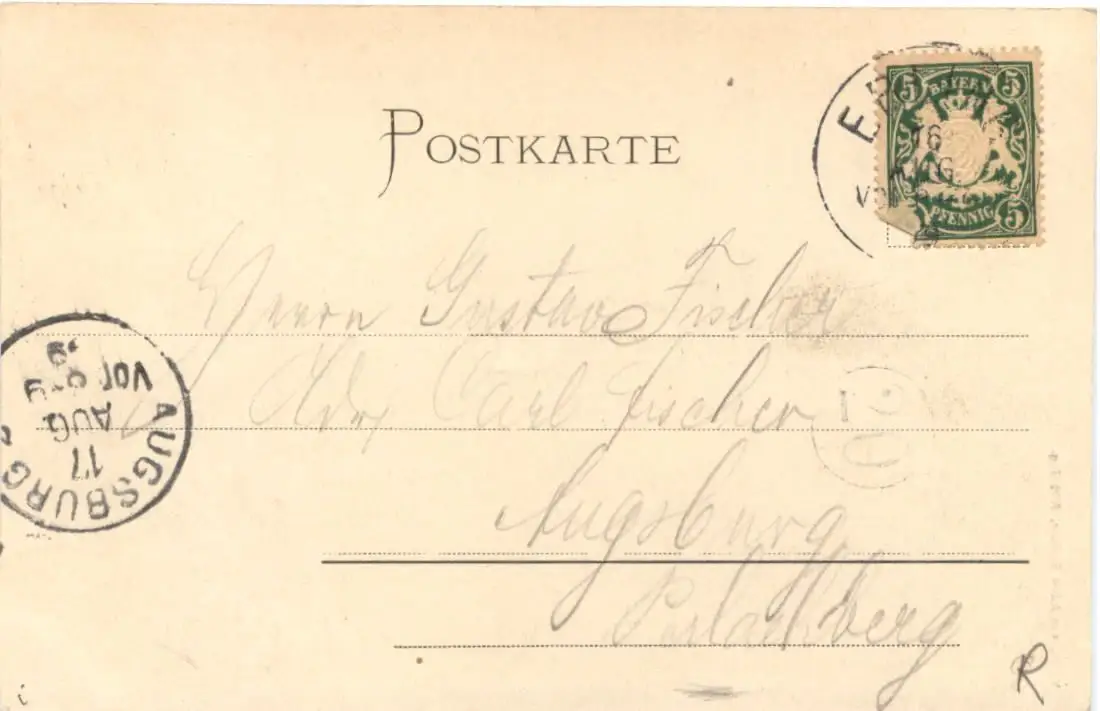 POSTKARTE
BAYERN
5 5
PFENNIG
5
16
AUG.
Herrn Gustav Fischer
Adr. Carl Fischer
Augsburg
AUGSBURG
17
AUG
VOR 8-9
R